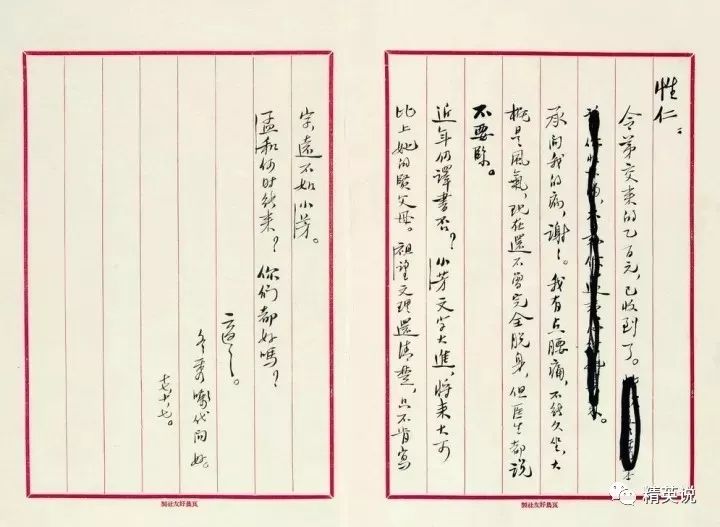 性仁：
令弟交来的乙百元，已收到了。
承问我的病，谢谢。我有点腰痛，不能久坐，大
概是風氣，现在還不曾完全脱身，但医生都説
不要緊。
近年仍譯書否？小芳文字大進，将来大可
比上她的賢父母。祖望文理還清楚，只不肯寫
字，遠不如小芳。
孟和何时能来？你们都好嗎？
適之。
冬秀嘱代问好。
十七，十，七。
瓦島好友社製
精英说